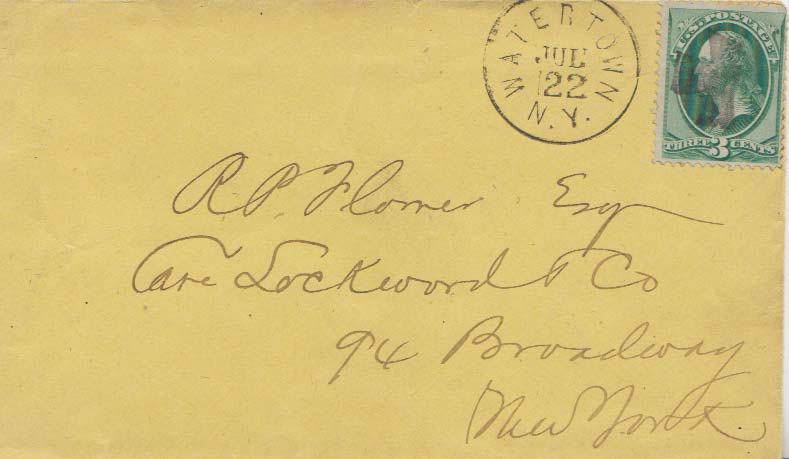 WATERTOWN
JUL
22
N.Y.
U.S. POSTAGE
THREE 3 CENTS
R P. Flower Esq
Care Lockwood & Co
94 Broadway
New York